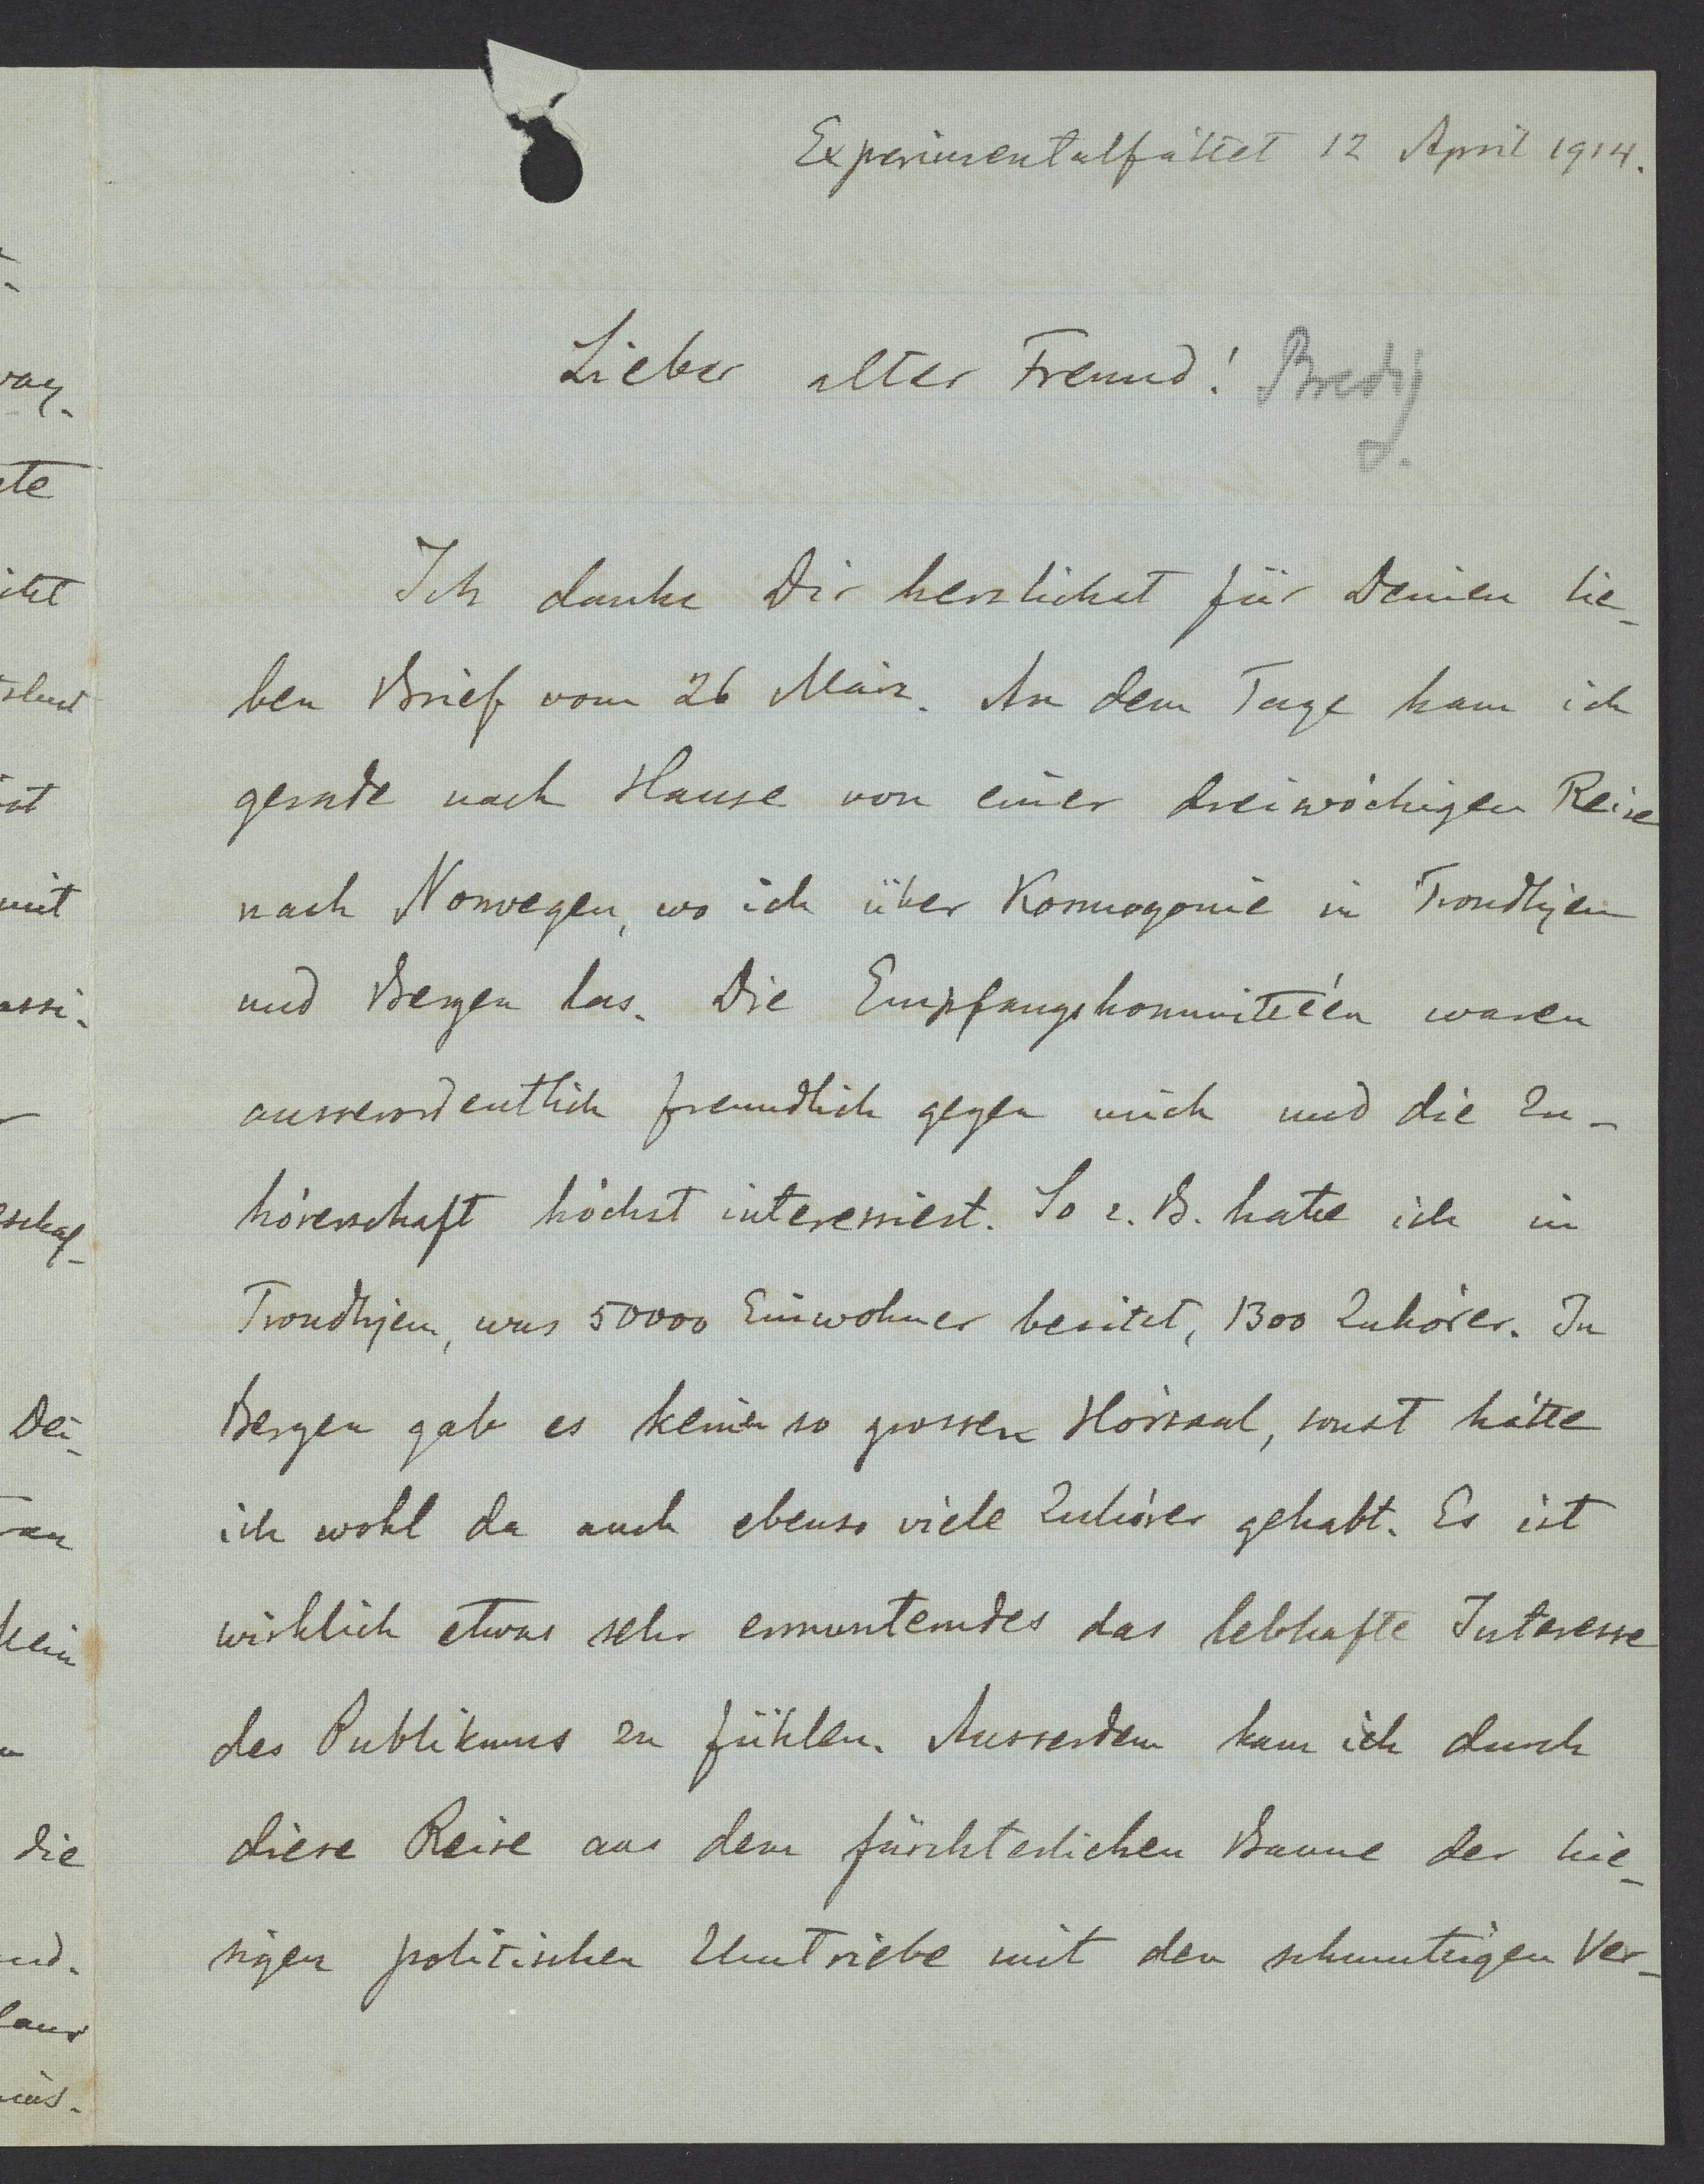 Experimentalfältet 12 April 1914.
Lieber alter Freund! Bredig
Ich danke Dir herzlichst für Deinen lie-
ben Brief vom 26 März. An dem Tage kam ich
gerade nach Hause von einer dreiwöchigen Reise
nach Norwegen, wo ich über Kosmogonie in Trondhjem
und Bergen las. Die Empfangskommittéen waren
ausserordentlich freundlich gegen mich und die Zu-
hörerschaft höchst interessiert. So z. B. hatte ich in
Trondhjem, was 50000 Einwohner besitzt, 1300 Zuhörer. In
Bergen gab es keinen so grossen Hörsaal, sonst hätte
ich wohl da auch ebenso viele Zuhörer gehabt. Es ist
wirklich etwas sehr ermunterndes das lebhafte Interesse
des Publikums zu fühlen. Ausserdem kam ich durch
diese Reise aus dem fürchterlichen Banne der hie-
sigen politischen Umtriebe mit den schmutzigen Ver-
ete
mit
Dei-
kein
die